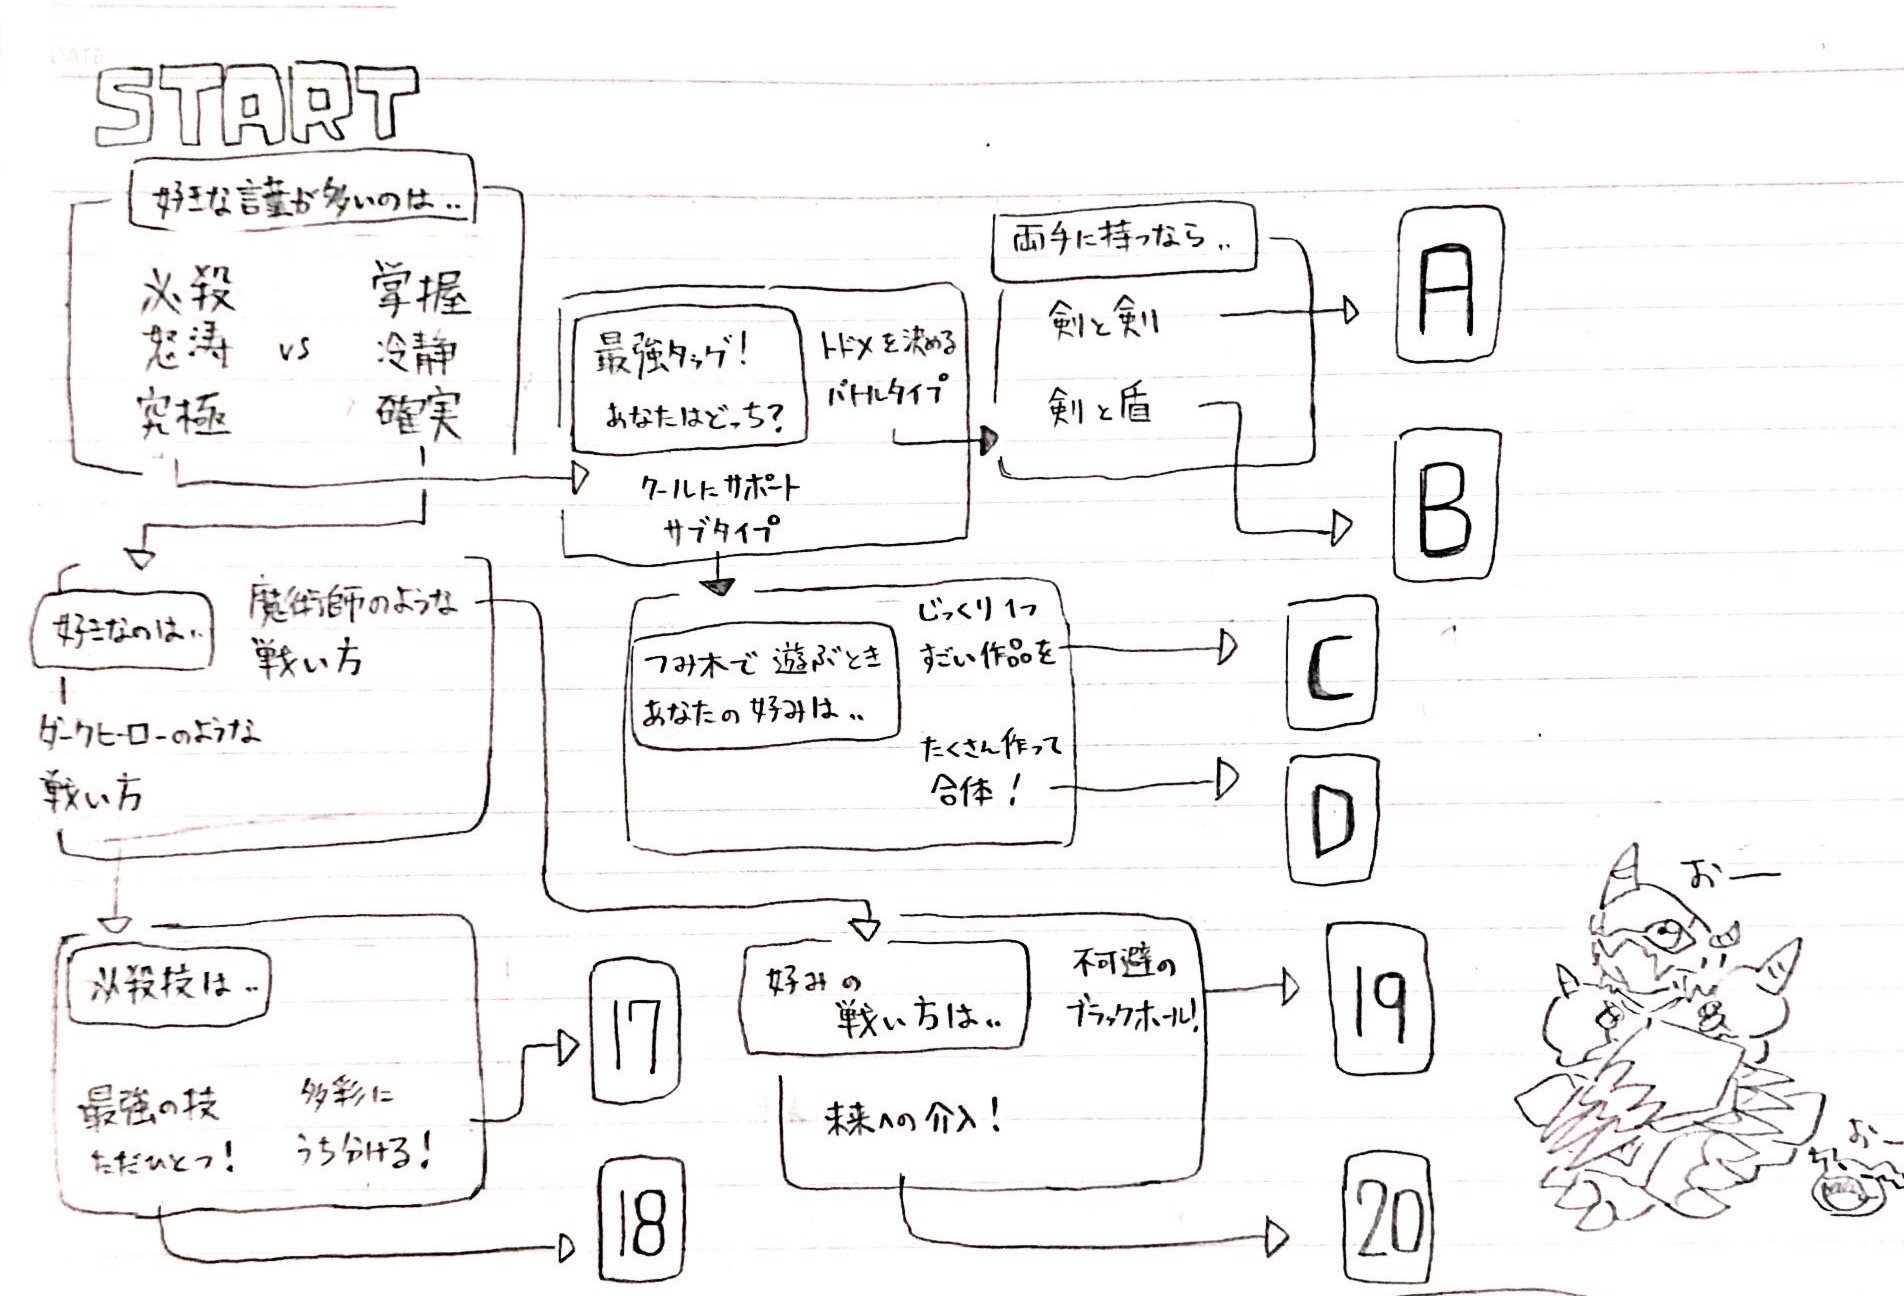 DATE
START
好きな言葉が多いのは‥
必殺
怒涛
究極
vs
掌握
冷静
確実
最強タッグ!
あなたはどっち?
トドメを決める
バトルタイプ
クールにサポート
サブタイプ
両手に持つなら‥
剣と剣
剣と盾
A
B
好きなのは‥
魔術師のような
戦い方
ダークヒーローのような
戦い方
つみ木で遊ぶとき
あなたの好みは‥
じっくり1つ
すごい作品を
たくさん作って
合体!
C
D
必殺技は‥
最強の技
ただひとつ!
多彩に
うち分ける!
17
18
好みの
戦い方は‥
不可避の
ブラックホール!
未来への介入!
19
20
おー
おー